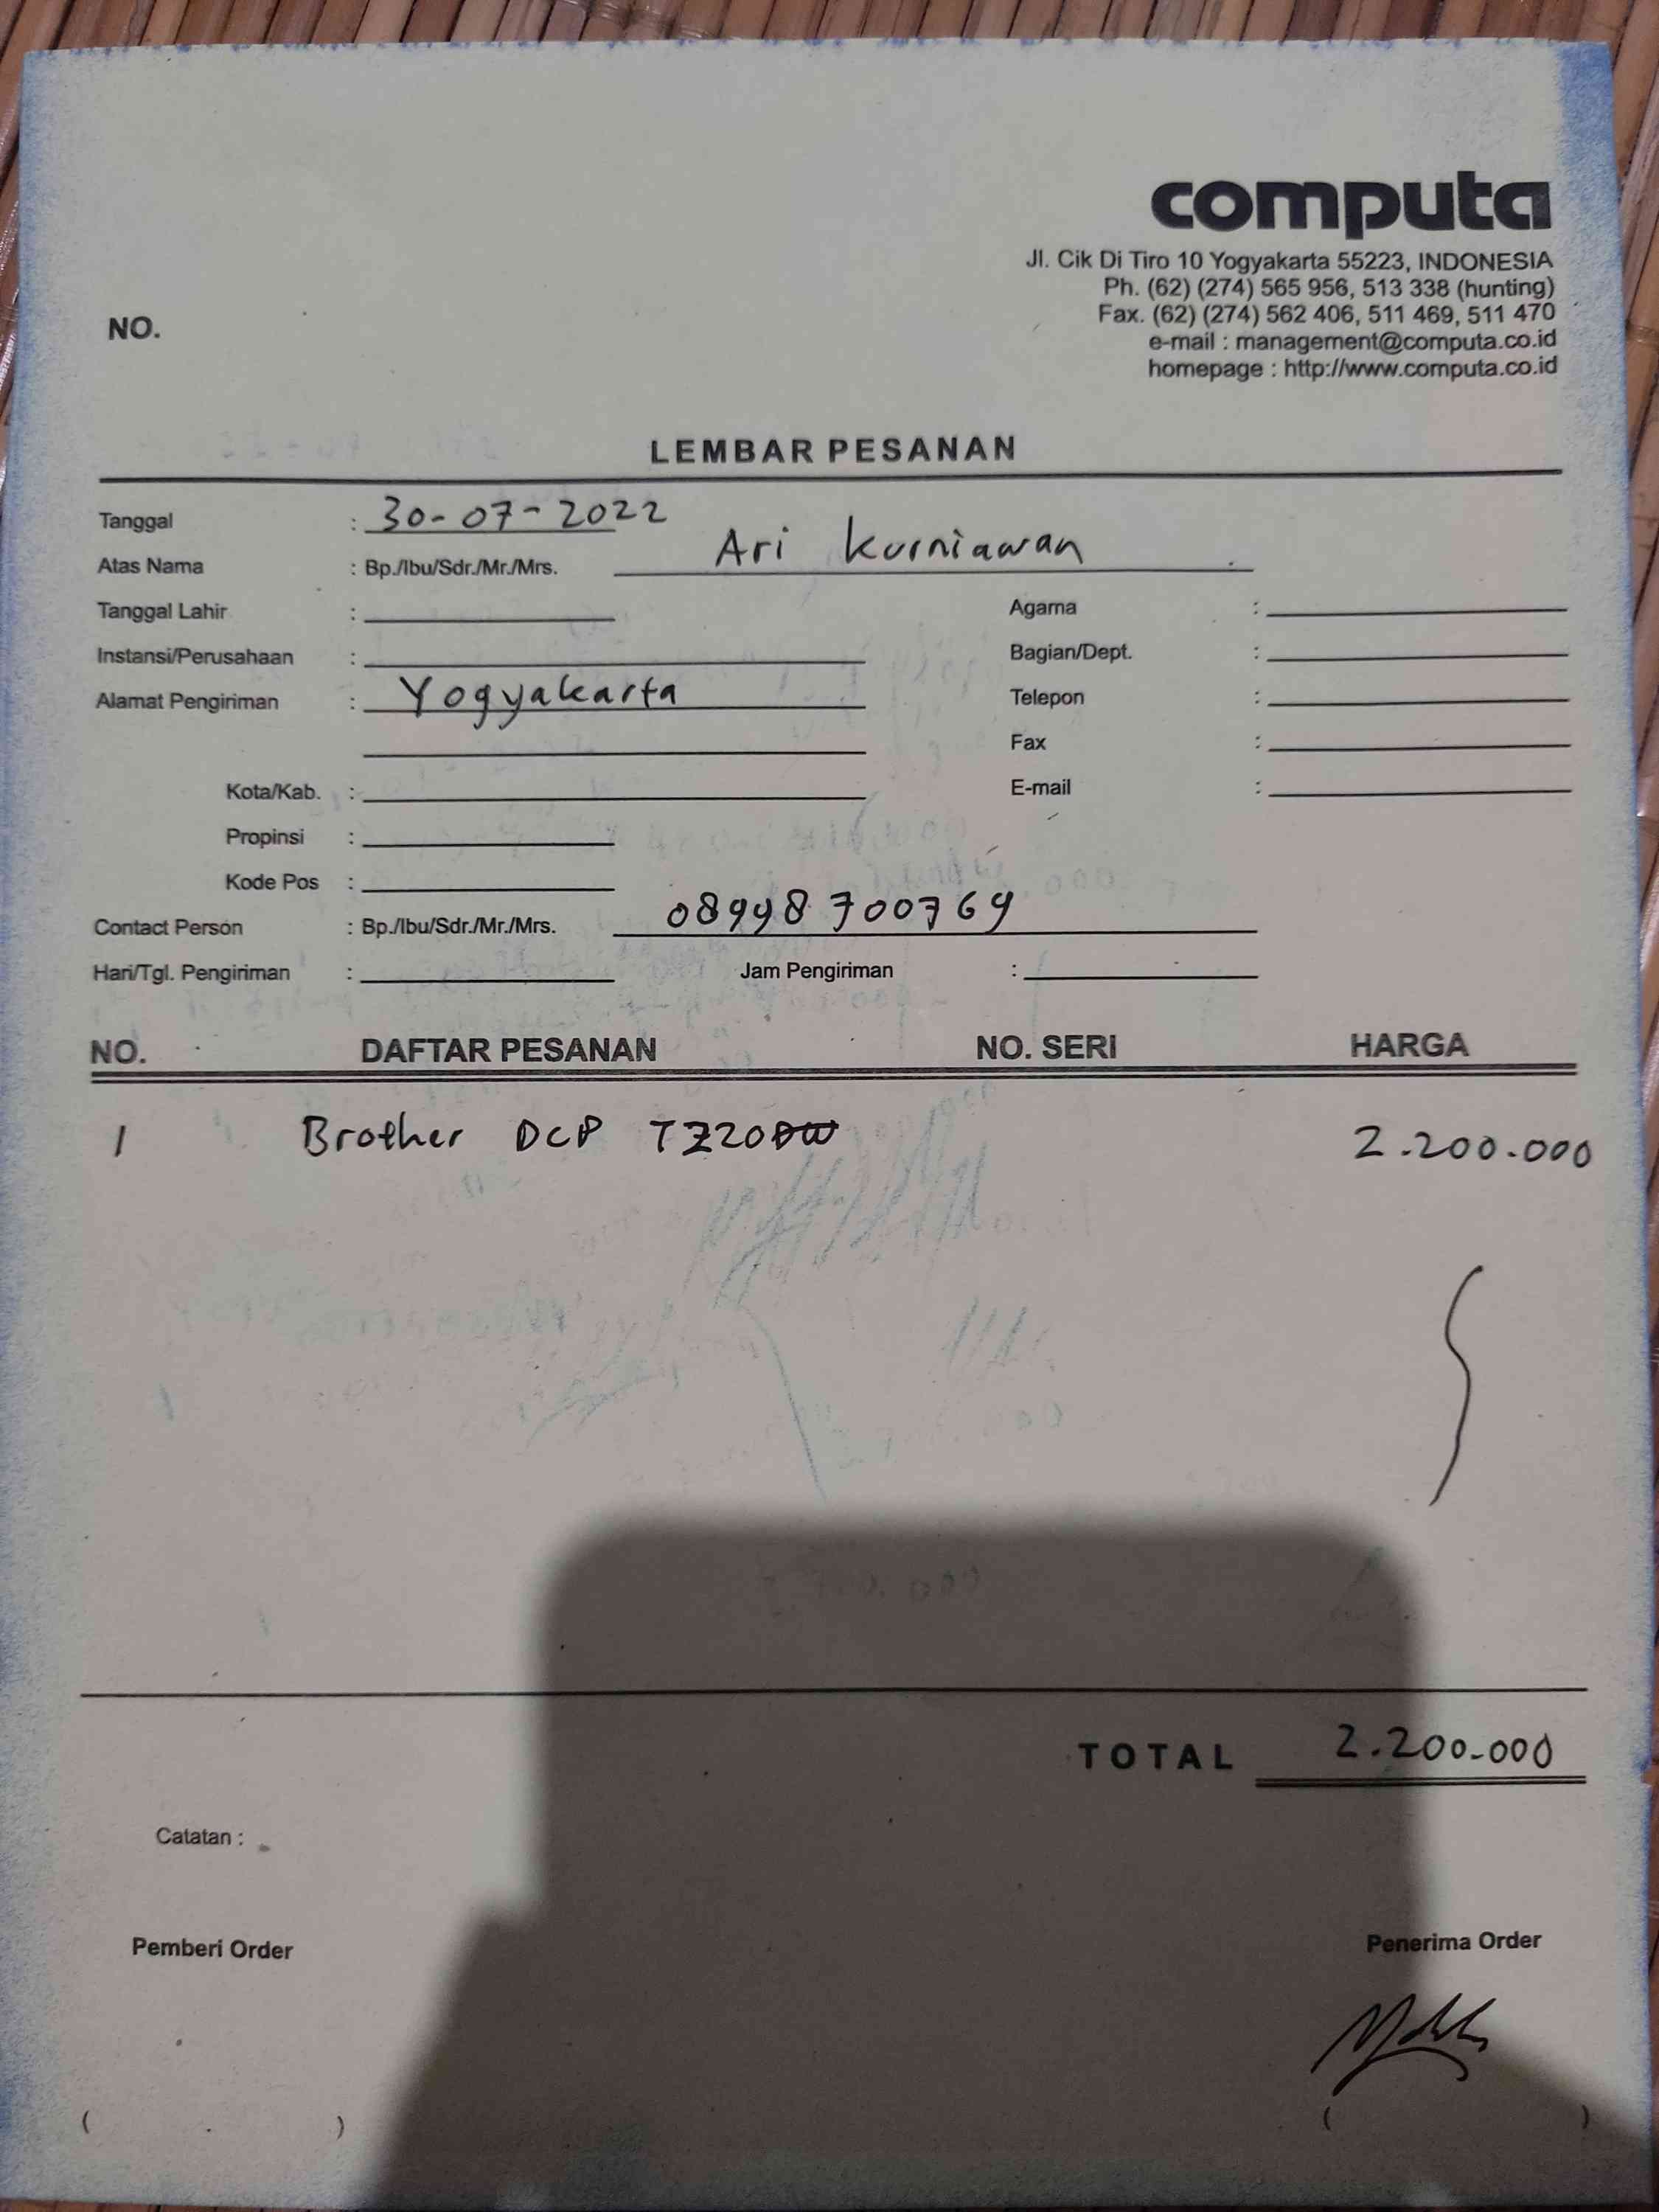 computa
Jl. Cik Di Tiro 10 Yogyakarta 55223, INDONESIA
Ph. (62) (274) 565 956, 513 338 (hunting)
Fax. (62) (274) 562 406, 511 469, 511 470
e-mail : management@computa.co.id
homepage : http://www.computa.co.id
NO.
LEMBAR PESANAN
Tanggal : 30-07-2022
Atas Nama : Bp./Ibu/Sdr./Mr./Mrs. Ari Kurniawan
Tanggal Lahir : Agama :
Instansi/Perusahaan : Bagian/Dept. :
Alamat Pengiriman : Yogyakarta Telepon :
Fax :
Kota/Kab. : E-mail :
Propinsi :
Kode Pos :
Contact Person : Bp./Ibu/Sdr./Mr./Mrs. 08998700769
Hari/Tgl. Pengiriman : Jam Pengiriman :
NO. DAFTAR PESANAN NO. SERI HARGA
1 Brother DCP T220 2.200.000
TOTAL 2.200.000
Catatan :
Pemberi Order Penerima Order
( ) ( )